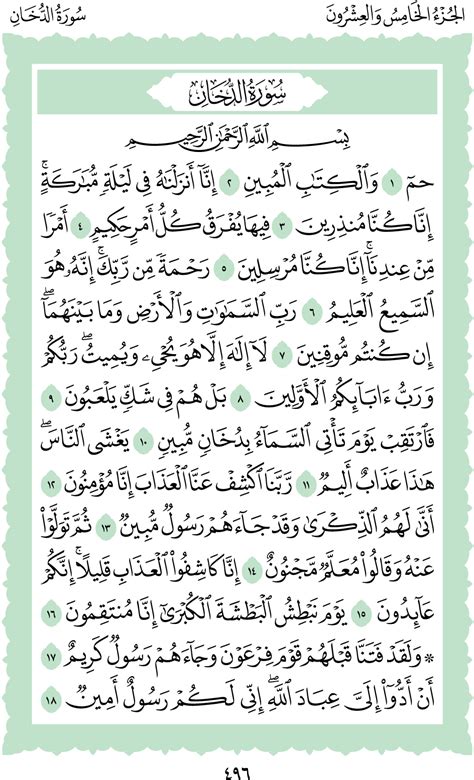 الجُزْءُ الخَامِسُ وَالعِشْرُونَ
سُورَةُ الدُّخَانِ
سُورَةُ الدُّخَانِ
بِسْمِ اللَّهِ الرَّحْمَٰنِ الرَّحِيمِ
حمٓ ١ وَٱلْكِتَٰبِ ٱلْمُبِينِ ٢ إِنَّآ أَنزَلْنَٰهُ فِي لَيْلَةٖ مُّبَٰرَكَةٍۚ
إِنَّا كُنَّا مُنذِرِينَ ٣ فِيهَا يُفْرَقُ كُلُّ أَمْرٍ حَكِيمٍ ٤ أَمْرٗا
مِّنْ عِندِنَآۚ إِنَّا كُنَّا مُرْسِلِينَ ٥ رَحْمَةٗ مِّن رَّبِّكَۚ إِنَّهُۥ هُوَ
ٱلسَّمِيعُ ٱلْعَلِيمُ ٦ رَبِّ ٱلسَّمَٰوَٰتِ وَٱلْأَرْضِ وَمَا بَيْنَهُمَآۖ
إِن كُنتُم مُّوقِنِينَ ٧ لَآ إِلَٰهَ إِلَّا هُوَ يُحْيِۦ وَيُمِيتُۖ رَبُّكُمْ
وَرَبُّ ءَابَآئِكُمُ ٱلْأَوَّلِينَ ٨ بَلْ هُمْ فِي شَكّٖ يَلْعَبُونَ ٩
فَٱرْتَقِبْ يَوْمَ تَأْتِي ٱلسَّمَآءُ بِدُخَانٖ مُّبِينٖ ١٠ يَغْشَى ٱلنَّاسَۖ
هَٰذَا عَذَابٌ أَلِيمٞ ١١ رَّبَّنَا ٱكْشِفْ عَنَّا ٱلْعَذَابَ إِنَّا مُؤْمِنُونَ ١٢
أَنَّىٰ لَهُمُ ٱلذِّكْرَىٰ وَقَدْ جَآءَهُمْ رَسُولٞ مُّبِينٞ ١٣ ثُمَّ تَوَلَّوْاْ
عَنْهُ وَقَالُواْ مُعَلَّمٞ مَّجْنُونٌ ١٤ إِنَّا كَاشِفُواْ ٱلْعَذَابِ قَلِيلًاۚ إِنَّكُمْ
عَآئِدُونَ ١٥ يَوْمَ نَبْطِشُ ٱلْبَطْشَةَ ٱلْكُبْرَىٰٓ إِنَّا مُنتَقِمُونَ ١٦
* وَلَقَدْ فَتَنَّا قَبْلَهُمْ قَوْمَ فِرْعَوْنَ وَجَآءَهُمْ رَسُولٞ كَرِيمٌ ١٧
أَنْ أَدُّوٓاْ إِلَيَّ عِبَادَ ٱللَّهِۖ إِنِّي لَكُمْ رَسُولٌ أَمِينٞ ١٨
٤٩٦